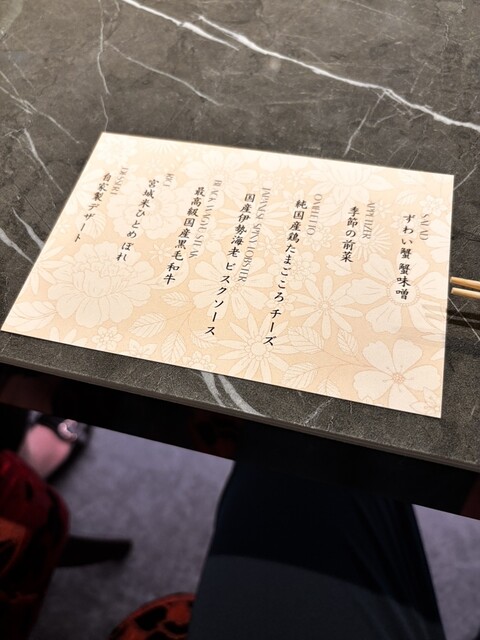 SALAD
ずわい蟹 蟹味噌
APPETIZER
季節の前菜
OMELET
純国産鶏たまごころ チーズ
JAPANESE SPINY LOBSTER
国産伊勢海老 ビスクソース
最高級国産黒毛和牛
宮城米ひとめぼれ
DESSERT
自家製デザート